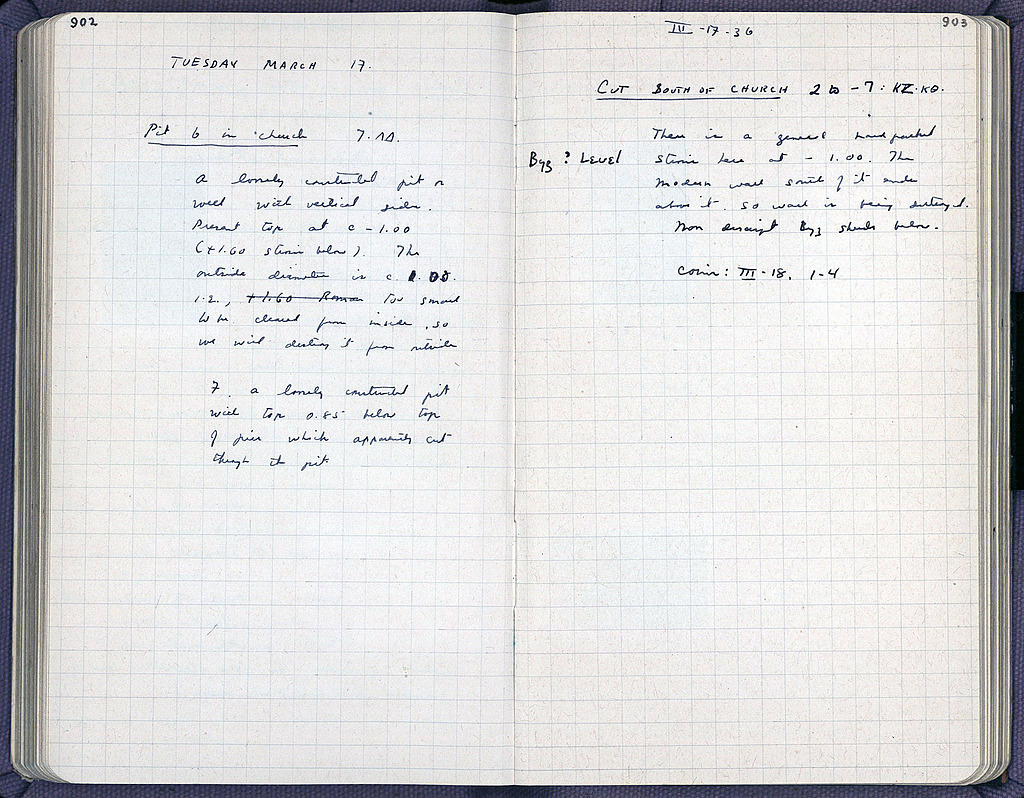 902
TUESDAY MARCH 17.
Pit 6 in church 7.ΛΔ.
A loosely constructed pit or
well with vertical sides.
Present top at c - 1.00
(+1.60 sterin below). The
outside diameter is c. 1.00.
1.2., +1.60 Roman Too small
to be cleared from inside, so
we will destroy it from outside
7. a loosely constructed pit
with top 0.85 below top
of pier which apparently cut
through the pit
903
III-17-36
CUT SOUTH OF CHURCH
There is a general hard packed
Byz ? Level
here at - 1.00. The
modern wall south of it ends
above it so wall is being destroyed.
Non descript Byz sherds below.
Coins: III-18, 1-4